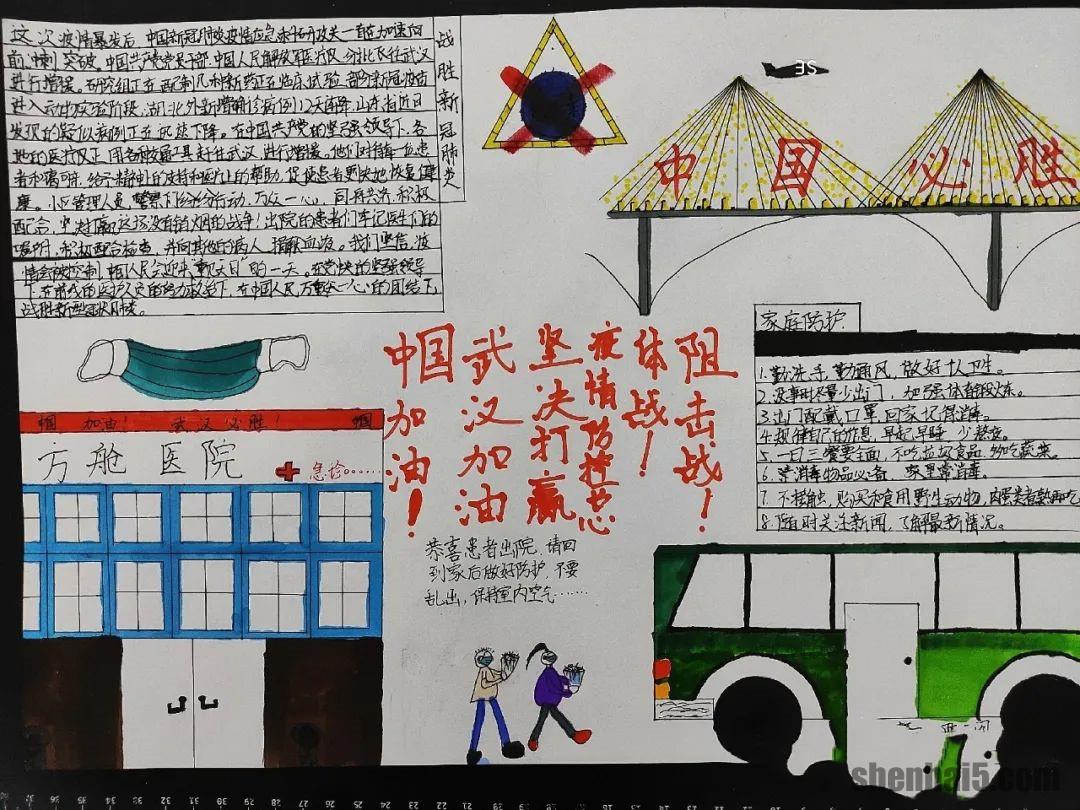 战胜新冠肺炎
这次疫情暴发后,中国新冠肺炎疫情应急科研攻关一直在加速向
前冲刺、突破。中国共产党党员干部,中国人民解放军医疗队,分批飞往武汉
进行增援。研究组正在配制几种新药正在临床试验,部分新冠疫苗
进入动物实验阶段,湖北外新增确诊病例12天下降,山东省近日
发现的疑似病例正在迅速下降。在中国共产党的坚强领导下,各
地的医疗队正用各种交通工具赶往武汉,进行增援。他们对待每一位患
者和蔼可亲,给予精神上的支持和
康。小区管理人员、警察
配合,坚决打赢这场没有硝烟的战争!出院的患者们牢记医生们的
嘱咐,积极配合检查,并向其他的病人,捐献血液。我们坚信,疫
情会被控制,中国人民会迎来
下,在前线的医护人员的努力救治下,在中国人民万众一心的团结下,
战胜新型冠状病毒。
3S
中国必胜
家庭防护
1.勤洗手,勤通风,做好个人卫生。
2.没事时尽量少出门,加强体育锻炼。
3.出门配戴口罩,回家记得消毒。
4.规律自己的作息,早起早睡,少熬夜。
5.一日三餐要全面,不吃垃圾食品,多吃蔬菜。
6.常消毒物品必备,家里常消毒。
7.不接触,购买和食用野生动物,肉蛋类煮熟再吃
8.随时关注新闻,了解最新情况。
中国加油!
武汉加油
坚决打赢
疫情防控总
体战!
阻击战!
中国 加油! 武汉必胜! 中国
方舱医院
急诊......
恭喜患者出院,请回
到家后做好防护,不要
乱出,保持室内空气......
shenhai5.com